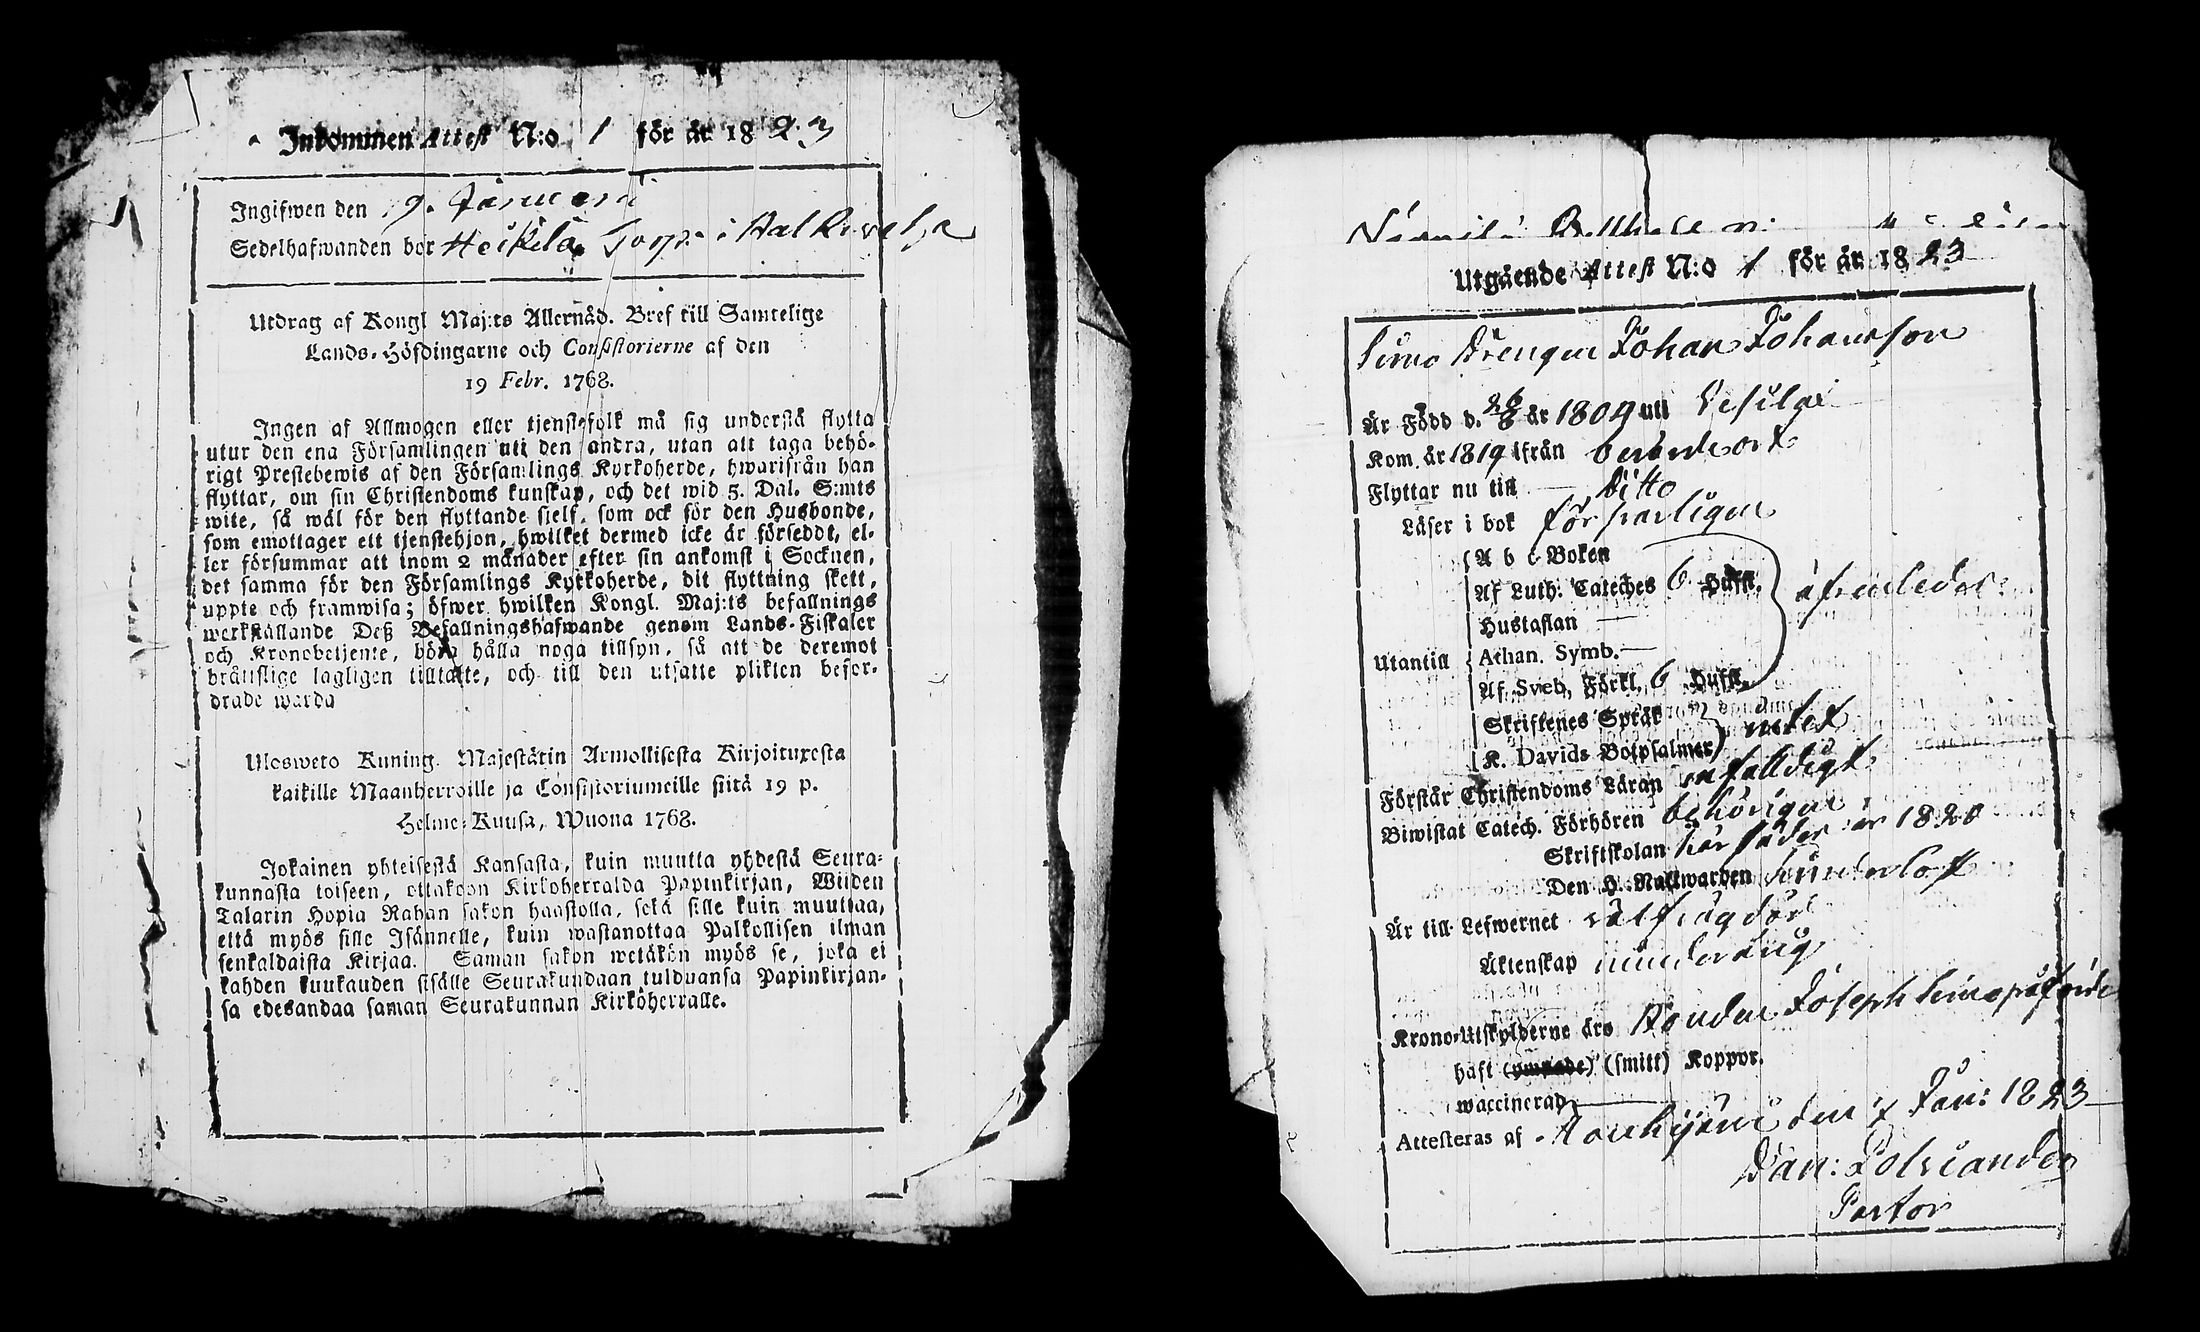 Inkommen Attest N:o 1 för år 1823
Ingifwen den 19. Januarii
Sedelhafwanden bor Heikilä Torp i Halkivaha
Utdrag af Kongl Maj:ts Allernåd. Bref till Samtelige
Lands-Höfdingarne och Consistorierne af den
19 Febr. 1768.
Ingen af Allmogen eller tjenstefolk må sig understå flytta
utur den ena Församlingen uti den andra, utan att taga behö-
rigt Prestebewis af den Församlings Kyrkoherde, hwarifrån han
flyttar, om sin Christendoms kunskap, och det wid 5. Dal. S:mts
wite, så wäl för den flyttande sielf, som ock för den Husbonde,
som emottager ett tjenstehjon, hwilket dermed icke är försedt, el-
ler försummar att inom 2 månader efter sin ankomst i Socknen,
det samma för den Församlings Kyrkoherde, dit flyttning skett,
uppte och framwisa; öfwer hwilken Kongl. Maj:ts befallnings
werkställande Deß Befallningshafwande genom Lands-Fiskaler
och Kronobetjente, böra hålla noga tillsyn, så att de deremot
bråttslige lagligen tilltalte, och till den utsatte plikten befor-
drade warda
Ulosweto Kuning. Majestätin Armollisesta Kirjoituxesta
kaikille Maanherroille ja Consistoriumeille siitä 19 p.
Helme-Kuusa, Wuona 1768.
Jokainen yhteisestä Kansasta, kuin muutta yhdestä Seura-
kunnasta toiseen, ottakoon Kirkoherralda Papinkirjan, Wiiden
Talarin Hopia Rahan sakon haastolla, sekä sille kuin muuttaa,
että myös sille Isännelle, kuin wastanottaa Palkollisen ilman
senkaldaista Kirjaa. Saman sakon wetäkön myös se, joka ei
kahden kuukauden sisälle Seurakundaan tulduansa Papinkirjan-
sa edesandaa saman Seurakunnan Kirköherralle.
Utgående Attest N:o 1 för år 1823
Drengen Johan Johansson
År Född d. 28/8 år 1804 uti Vesilax
Kom år 1819 ifrån berörde ort
Flyttar nu till Ditto
Läser i bok försvarligen
A b c Boken
Af Luth: Cateches 6 Hufst.
Hustaflan
Utantill Athan. Symb.
Af Sveb. Förkl. 6 Hufst.
Skriftenes Språk
K. Davids Botpsalmer intet
Förstår Christendoms Läran enfaldigt
Biwistat Catech. Förhören behörigen
Skriftskolan här sedan år 1820
Den H. Nattwarden
Är till Lefwernet
Äktenskap minderårig
Krono-Utskylderne äro Bonden Joseph
haft (ympade) (smitt) Koppor.
waccinerad
Attesteras af den Jan: 1823
Dan:
Pastor